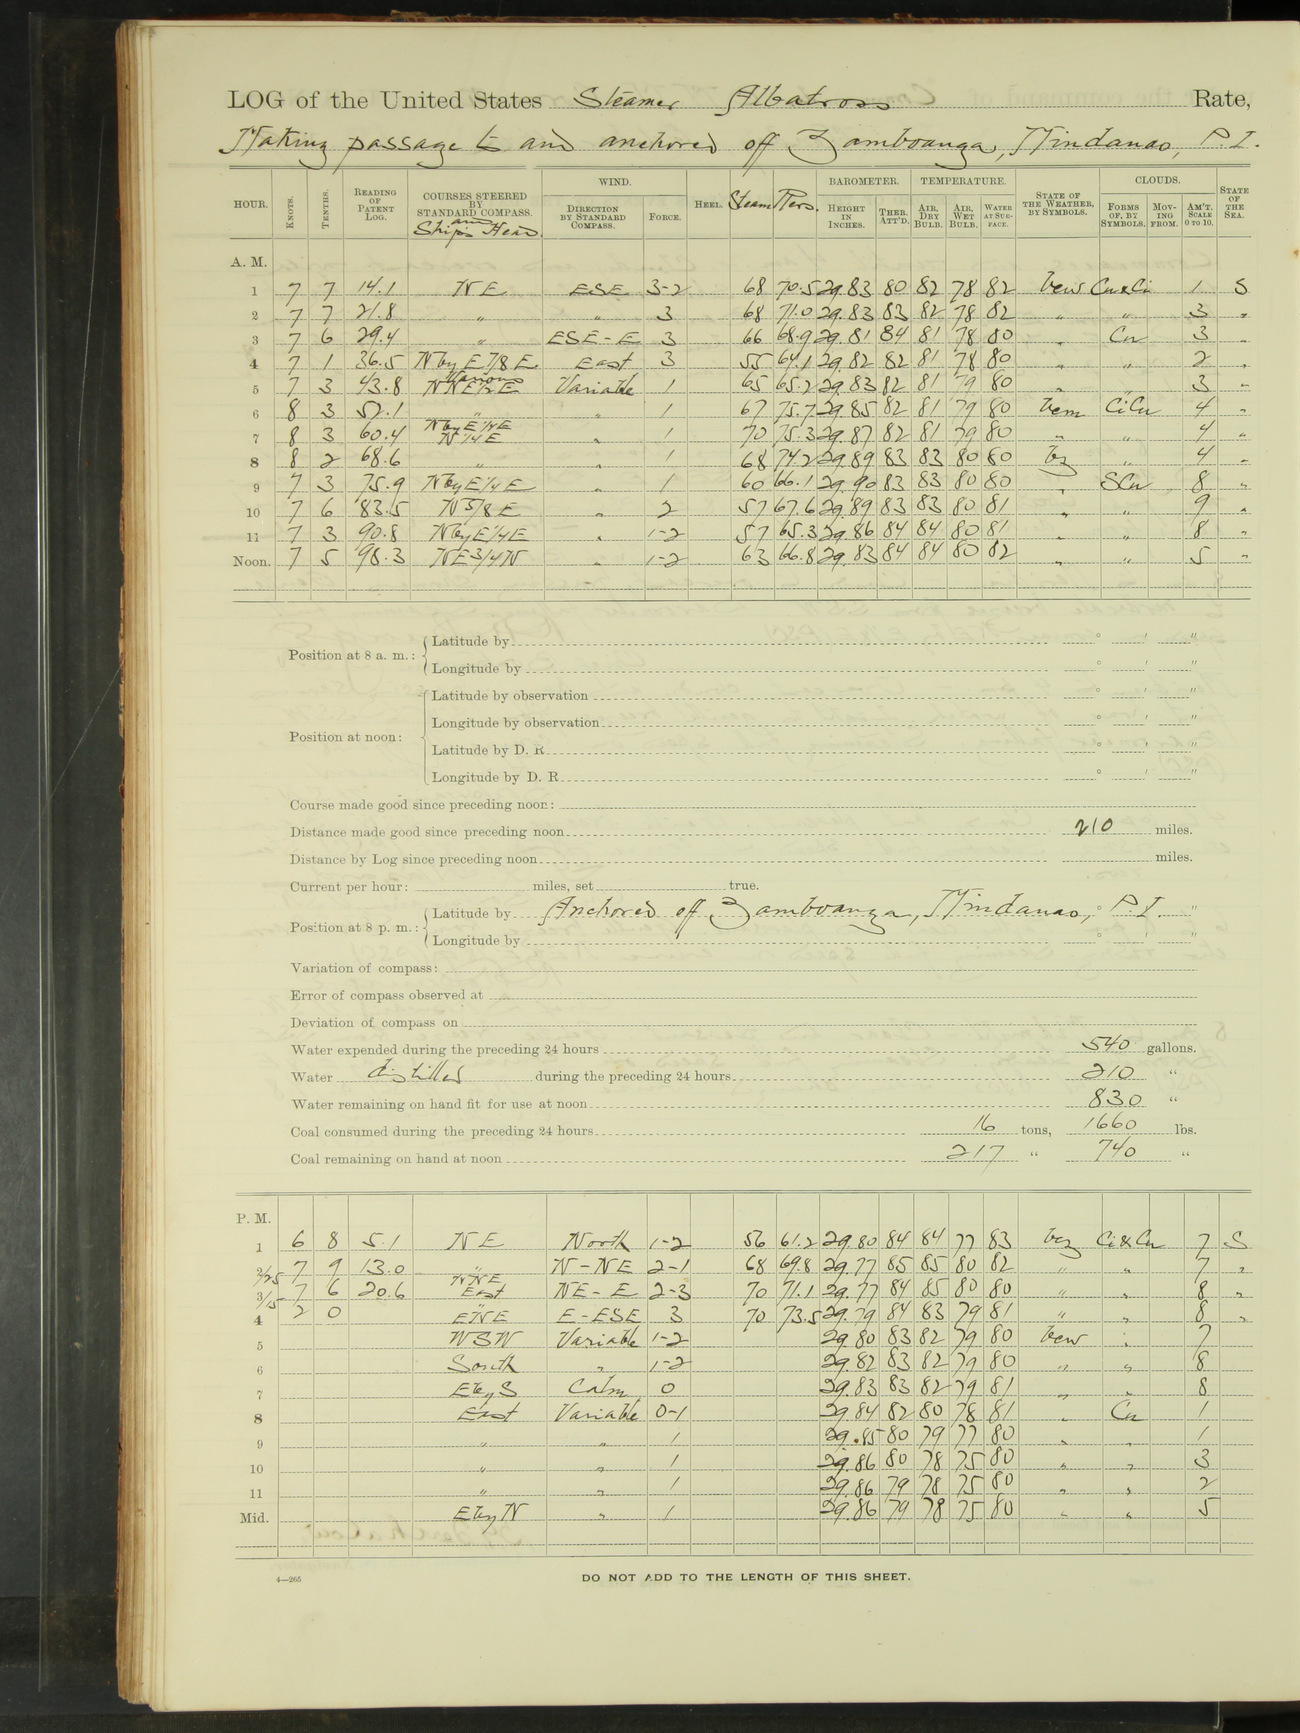 LOG of the United States Steamer Albatross Rate,
Making passage to and anchored off Zamboanga, Mindanao, P. I.
HOUR. KNOTS. TENTHS. READING OF PATENT LOG. COURSES STEERED BY STANDARD COMPASS. and Ship's Head. WIND. DIRECTION BY STANDARD COMPASS. FORCE. HEEL. Steam Revs. BAROMETER. HEIGHT IN INCHES. THER. ATT'D. TEMPERATURE. AIR, DRY BULB. AIR, WET BULB. WATER AT SURFACE. STATE OF THE WEATHER, BY SYMBOLS. CLOUDS. FORMS OF, BY SYMBOLS. MOVING FROM. AM'T. SCALE 0 TO 10. STATE OF THE SEA.
A. M.
1 7 7 14.1 NE ESE 3-2 68 70.5 29.83 80 82 78 82 bcw Cu&Ci 1 S
2 7 7 21.8 " " 3 68 71.0 29.83 83 82 78 82 " " 3 "
3 7 6 29.4 " ESE-E 3 66 68.9 29.81 84 81 78 80 " Cu 3 "
4 7 1 36.5 NbyE 7/8 E East 3 55 64.1 29.82 82 81 78 80 " " 2 "
5 7 3 43.8 Various NNE 1/2 E Variable 1 65 65.2 29.83 82 81 79 80 " " 3 "
6 8 3 52.1 " " 1 67 75.7 29.85 82 81 79 80 bcm CiCu 4 "
7 8 3 60.4 NbyE 1/4 E N 1/4 E " 1 70 75.3 29.87 82 81 79 80 " " 4 "
8 8 2 68.6 " " 1 68 74.2 29.89 83 83 80 80 bcz " 4 "
9 7 3 75.9 NbyE 1/4 E " 1 60 66.1 29.90 83 83 80 80 " SCu 8 "
10 7 6 83.5 N 5/8 E " 2 57 67.6 29.89 83 83 80 81 " " 9 "
11 7 3 90.8 NbyE 1/4 E " 1-2 57 65.3 29.86 84 84 80 81 " " 8 "
Noon. 7 5 98.3 NE 3/4 N " 1-2 63 66.8 29.83 84 84 80 82 " " 5 "
Position at 8 a. m.: Latitude by ° ' "
Longitude by ° ' "
Position at noon: Latitude by observation ° ' "
Longitude by observation ° ' "
Latitude by D. R. ° ' "
Longitude by D. R. ° ' "
Course made good since preceding noon:
Distance made good since preceding noon 210 miles.
Distance by Log since preceding noon miles.
Current per hour: miles, set true.
Position at 8 p. m.: Latitude by Anchored off Zamboanga, Mindanao, P. I. ° "
Longitude by ° ' "
Variation of compass:
Error of compass observed at
Deviation of compass on
Water expended during the preceding 24 hours 540 gallons.
Water distilled during the preceding 24 hours 210 "
Water remaining on hand fit for use at noon 830 "
Coal consumed during the preceding 24 hours 16 tons, 1660 lbs.
Coal remaining on hand at noon 217 " 740 "
P. M.
1 6 8 5.1 NE North 1-2 56 61.2 29.80 84 84 77 83 bcz Ci&Cu 7 S
2/25 7 9 13.0 " N-NE 2-1 68 69.8 29.77 85 85 80 82 " " 7 "
3/15 7 6 20.6 NNE East NE-E 2-3 70 71.1 29.77 84 85 80 80 " " 8 "
4 2 0 " ENE E-ESE 3 70 73.5 29.79 84 83 79 81 " " 8 "
5 WSW Variable 1-2 29.80 83 82 79 80 bcw " 7
6 South " 1-2 29.82 83 82 79 80 " " 8
7 EbyS Calm 0 29.83 83 82 79 81 " " 8
8 East Variable 0-1 29.84 82 80 78 81 " Cu 1
9 " " 1 29.85 80 79 77 80 " " 1
10 " " 1 29.86 80 78 75 80 " " 3
11 " " 1 29.86 79 78 75 80 " " 2
Mid. EbyN " 1 29.86 79 78 75 80 " " 5
4—265
DO NOT ADD TO THE LENGTH OF THIS SHEET.